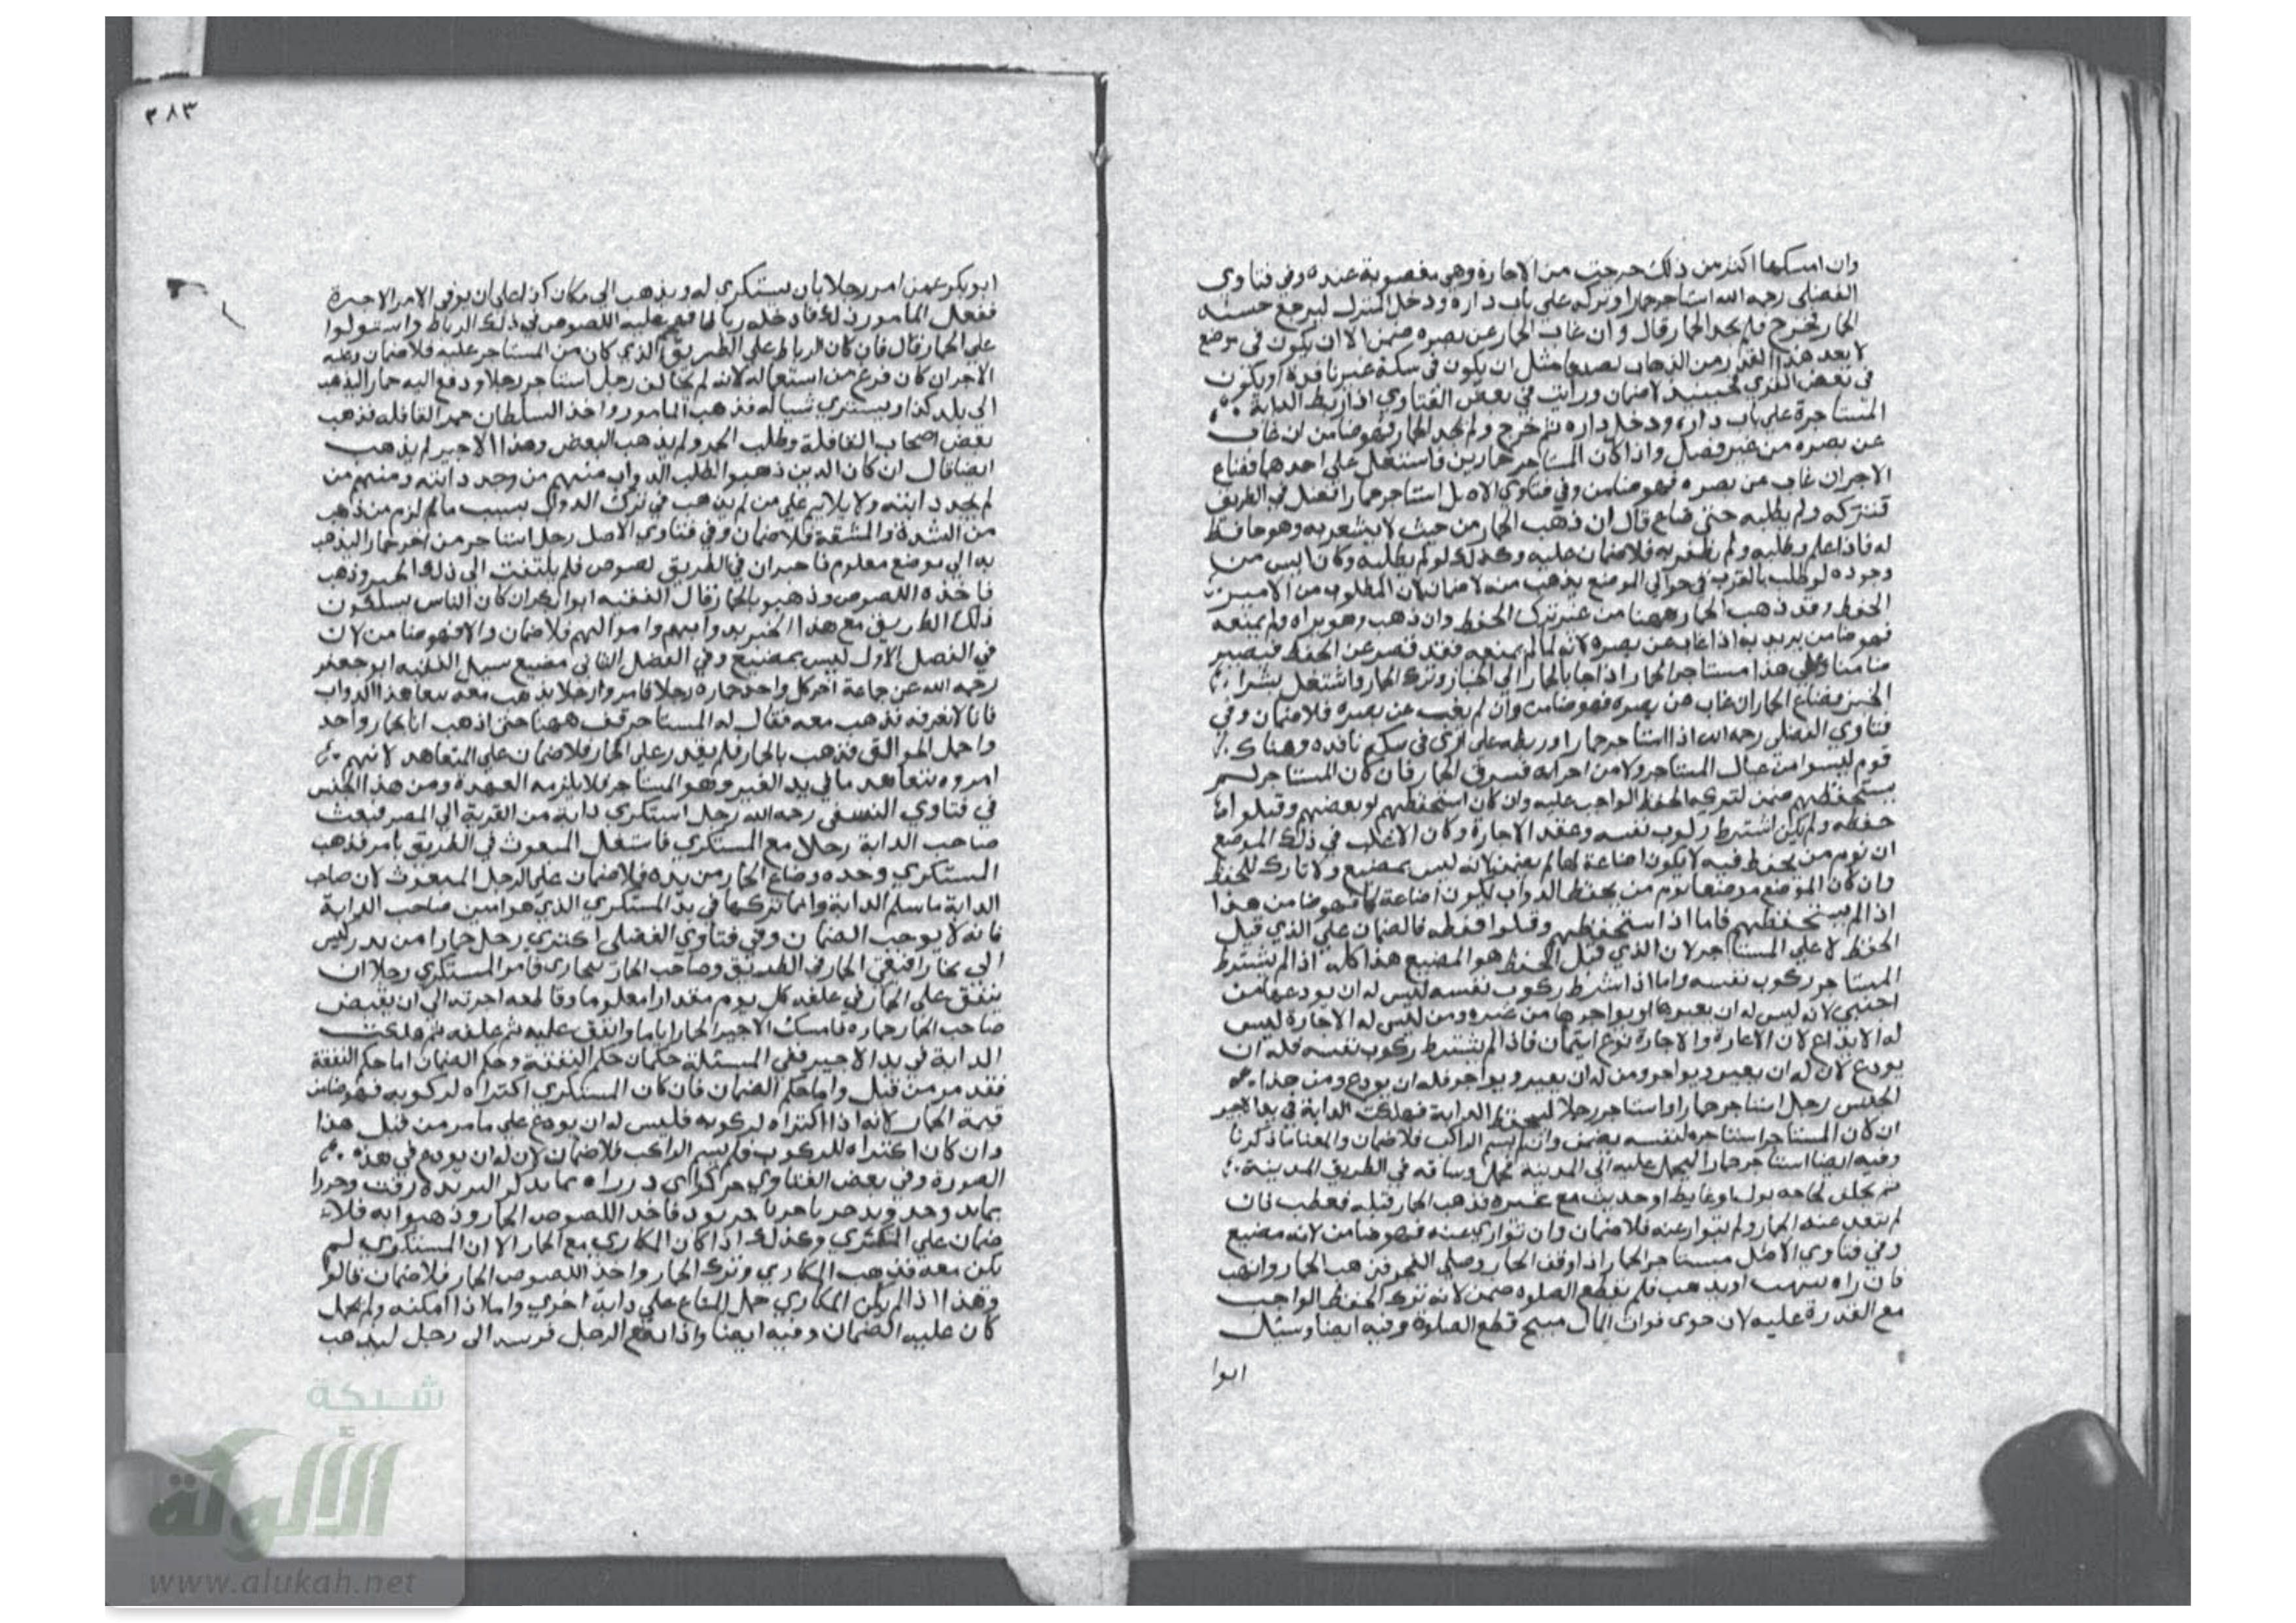 وان امسكها اكثر من ذلك خرجت من الاجارة وهي مغصوبة عنده وفي فتاوى
الفضلى رحمه الله استاجر حمارا وتركه على باب داره ودخل المنزل ليرفع خشبه
الحمار فخرج فلم يجد الحمار قال وان غاب الحمار عن بصره ضمن الا ان يكون في موضع
لا يعد هذا القدر من الذهاب تضييعا مثل ان يكون في سكة غير نافذة او يكون
في بعض القرى فحينيذ لا ضمان ورايت في بعض الفتاوي اذا ربط الدابة
المستاجرة على باب داره ودخل داره ثم خرج ولم يجد الحمار فهو ضامن ان غاب
عن بصره من غير فصل واذا كان المستاجر حمارين فاشتغل على احدهما فضاع
الاخر ان غاب عن بصره فهو ضامن وفي فتاوي الاصل استاجر حمارا فضل في الطريق
فتركه ولم يطلبه حتى ضاع قال ان ذهب الحمار من حيث لا يشعر به وهو حافظ
له فاذا علم وطلبه ولم يظفر به فلا ضمان عليه وكذلك لو لم يطلبه وكان ايس من
وجوده لو طلب بالقرب في حوالي الموضع يذهب منه لا ضمان لان المطلوب من الامين
الحفظ وقد ذهب الحمار ههنا من غير ترك الحفظ وان ذهب وهو يراه ولم يمنعه
فهو ضامن يريد به اذا غاب عن بصره لانه لما لم يمنعه فقد قصر عن الحفظ فيصير
ضامنا وعلى هذا مستاجر الحمار اذا جا بالحمار الى الخباز وترك الحمار واشتغل بشرا
الخبز فضاع الحمار ان غاب عن بصره فهو ضامن وان لم يغب عن بصره فلا ضمان وفي
فتاوي الفضلى رحمه الله اذا استاجر حمارا وربطه على اري في سكة نافذه وهناك
قوم ليسوا من عيال المستاجر ولا من اجرايه فسرق الحمار فان كان المستاجر لم
يستحفظهم ضمن لتركه الحفظ الواجب عليه وان كان استحفظهم او بعضهم وقبلوا اما
حفظه ولم يكن اشترط ركوب نفسه وعقد الاجارة وكان الاغلب في ذلك الموضع
ان نوم من يحفظ فيه لا يكون اضاعة لها لم يضمن لانه ليس بمضيع ولا تارك للحفظ
وان كان الموضع موضعا نوم من يحفظ الدواب يكون اضاعة لها فهو ضامن هذا
اذا لم يستحفظهم فاما اذا استحفظهم وقبلوا حفظه فالضمان على الذي قبل
الحفظ لا على المستاجر لان الذي قبل الحفظ هو المضيع هذا كله اذا لم يشترط
المستاجر ركوب نفسه واما اذا اشترط ركوب نفسه ليس له ان يودعها من
اجنبي لانه ليس له ان يعيرها او يواجرها من غيره ومن ليس له الاجارة ليس
له الايداع لان الاعارة والاجارة نوع ايتمان فاذا لم يشترط ركوب نفسه فله ان
يودع لان له ان يعير ويواجر ومن له ان يعير ويواجر فله ان يودع ومن هذا
الجنس رجل استاجر حمارا واستاجر رجلا ليحفظ الدابة فهلكت الدابة في يد الاجير
ان كان المستاجر استاجره لنفسه يضمن وان لم يسم الراكب فلا ضمان والمعنا ما ذكرنا
وفيه ايضا استاجر حمارا ليحمل عليه الى المدينة فحمل وساقه في الطريق المدينة
ثم تخلف لحاجه بول او غايط او حديث مع غيره فذهب الحمار قبله فعطب فان
لم يتعد عنه الحمار ولم يتوار عنه فلا ضمان وان توارى عنه فهو ضامن لانه مضيع
وفي فتاوي الاصل مستاجر الحمار اذا اوقف الحمار وصلى الفجر فذهب الحمار وانتهب
فان راه ينهب او يذهب فلم يقطع الصلوة ضمن لانه ترك الحفظ الواجب
مع القدرة عليه لان خوف فوات المال مبيح قطع الصلوة وفيه ايضا وسئل
ابوا
٣٨٣
ابو بكر عمن امر رجلا بان يستكري له ويذهب الى مكان كذا على ان يوفى الامر الاجرة
ففعل المامور ذلك فادخله رباطا فهجم عليه اللصوص في ذلك الرباط واستولوا
على الحمار قال فان كان الرباط على الطريق الذي كان من المستاجر عليه فلا ضمان وعليه
الاجر ان كان فرغ من استعماله لانه لم يخالف رجل استاجر رجلا ودفع اليه حمارا ليذهب
الى بلد كذا ويشتري شياله فذهب المامور واخذ السلطان حمر القافله فذهب
بعض اصحاب القافلة وطلب الحمر ولم يذهب البعض وهذا الاجير لم يذهب
ايضا قال ان كان الذين ذهبوا لطلب الدواب منهم من وجد دابته ومنهم من
لم يجد دابته ولا يلايم على من لم يذهب في ترك الدواب بسبب ما لم لزم من ذهب
من الشدة والمشقة فلا ضمان وفي فتاوي الاصل رجل استاجر من اخر حمارا ليذهب
به الى موضع معلوم فاخبر ان في الطريق لصوص فلم يلتفت الى ذلك الخبر وذهب
فاخذه اللصوص وذهبو بالحمار قال الفقيه ابو بكر ان كان الناس يسلكون
ذلك الطريق مع هذا الخبر بدوابهم واموالهم فلا ضمان والا فهو ضامن لان
في الفصل الاول ليس بمضيع وفي الفصل الثاني مضيع سيل الفقيه ابو جعفر
رحمه الله عن جماعة اجر كل واحد حماره رجلا فامروا رجلا يذهب معه يتعاهد الدواب
فانا لا نعرفه فذهب معه فقال له المستاجر قف ههنا حتى اذهب انا بحمار واحد
واحمل الجوالق فذهب بالحمار فلم يقدر على الحمار فلا ضمان على المتعاهد لانهم
امروه بتعاهد ما في يد الغير وهو المستاجر فلا يلزمه العهدة ومن هذا الجنس
في فتاوي النسفى رحمه الله رجل استكرى دابة من القرية الى المصر فبعث
صاحب الدابة رجلا مع المستكري فاشتغل المبعوث في الطريق بامر فذهب
المستكري وحده وضاع الحمار من يده فلا ضمان على الرجل المبعوث لان صاحب
الدابة ما سلم الدابة وانما تركها في يد المستكري الذي هو امين صاحب الدابة
فانه لا يوجب الضمان وفي فتاوي الفضلى اكترى رجل حمارا من
الى بخارا فبقى الحمار في الطريق وصاحب الحمار ببخارى فامر المستكري رجلا ان
ينفق على الحمار في علفه كل يوم مقدارا معلوما وقاطعه اجرته الى ان يقبض
صاحب الحمار حماره فامسك الاجير الحمار اياما وانفق عليه ثم علفه ثم هلكت
الدابة في يد الاجير ففي المسئلة حكمان حكم النفقة وحكم الضمان اما حكم النفقة
فقد مر من قبل واما حكم الضمان فان كان المستكري اكتراه لركوبه فهو ضامن
قيمة الحمار لانه اذا اكتراه لركوبه فليس له ان يودع على ما مر من قبل هذا
وان كان اكتراه للركوب فلم يسم الراكب فلا ضمان لان له ان يودع في هذه
الصورة وفي بعض الفتاوي
فاخذ اللصوص الحمار وذهبوا به فلا
ضمان على المكتري وكذلك اذا كان المكاري مع الحمار الا ان المستكري لم
يكن معه فذهب المكاري وترك الحمار واخذ اللصوص الحمار فلا ضمان قالو
وهذا اذا لم يكن المكاري حمل المتاع على دابة اخري واما اذا امكنه ولم يحمل
كان عليه الضمان وفيه ايضا واذا دفع الرجل فرسه الى رجل ليذهب
شبكة
الألوكة
www.alukah.net